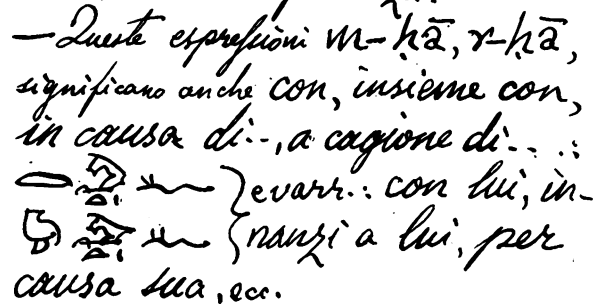 — Queste espreſsioni m-ḥā, r-ḥā,
significano anche con, insieme con,
in causa di--, a cagione di....:
} e varr.: con lui, in-
nanzi a lui, per
causa sua, ecc.